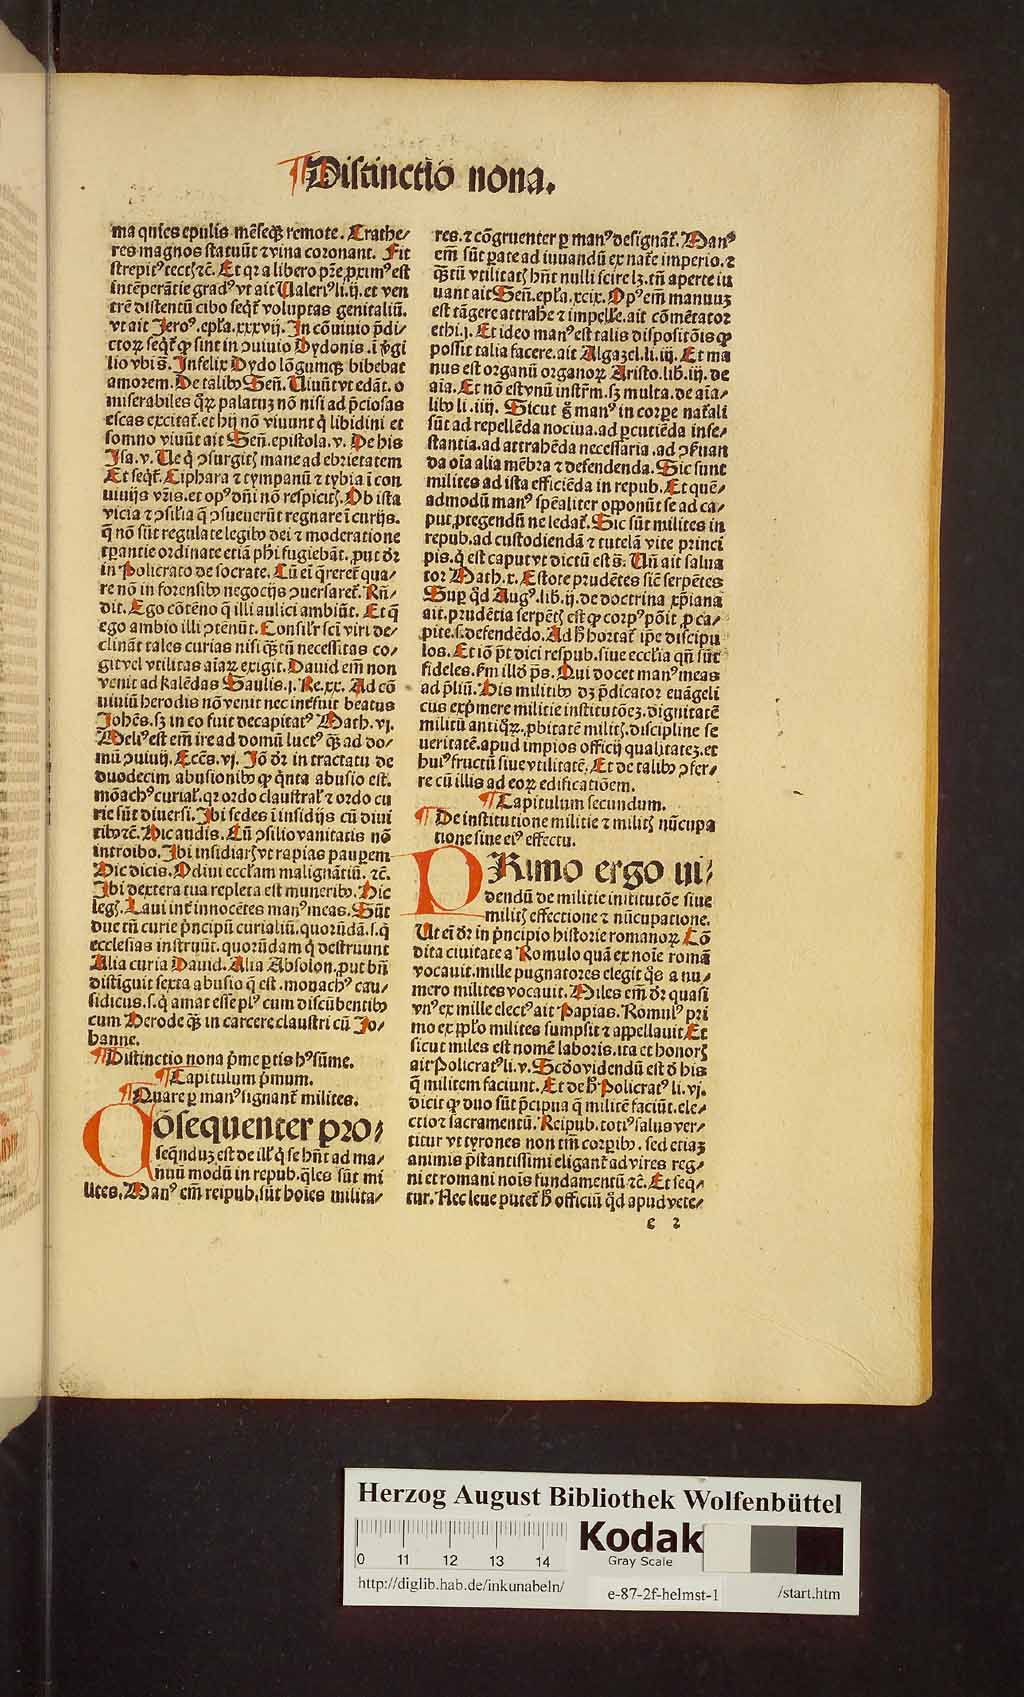 ¶ Distinctio nona.
ma quies epulis mēseqꝫ remote. Crathe⸗
res magnos statuūt ⁊ vina coronant. Fit
strepitꝰ tectis ⁊c̄. Et qꝛ a libero pr̄e ꝓximꝰ est
intēperātie gradꝰ vt ait Ualeriꝰ li. ij. et ven
trē distentū cibo seqt̄ voluptas genitaliū.
vt ait Jeroꝰ. epl̄a. xxxvij. In cōuiuio p̄di⸗
ctoꝝ seqt̄ ꝙ sunt in ꝯuiuio Dydonis. ī v̓gi
lio vbi s̄. Infelix Dydo lōgumqꝫ bibebat
amorem. De talibꝰ Señ. Uiuūt vt edāt. o
miserabiles qꝝ palatuꝫ nō nisi ad p̄ciosas
escas excitat̄. et hij nō viuunt q̇ libidini et
somno viuūt ait Señ. epistola. v. De his
Isa. v. Ue q̇ ꝯsurgitꝭ mane ad ebrietatem
Et seqt̄. Ciphara ⁊ tympanū ⁊ tybia ī con
uiuijs vr̄is. et opꝰ dn̄i nō respicitꝭ. Ob ista
vicia ⁊ ꝯsil̄ia q̄ ꝯsueuerūt regnare ī curijs.
q̄ nō sūt regulate legibꝰ dei ⁊ moderatione
tꝑantie ordinate etiā ph̄i fugiebāt. ꝓut dr̄
in Policrato de socrate. Cū eī q̄reret̄ qua⸗
re nō in forensibꝰ negocijs ꝯuersaret̄. Rn̄⸗
dit. Ego cōtēno q̄ illi aulici ambiūt. Et q̄
ego ambio illi ꝯtēnūt. Consil̄r sc̄i viri de⸗
clināt tales curias nisi qꝫtū necessitas co⸗
git vel vtilitas aīaꝝ exigit. Dauid em̄ non
venit ad kalēdas Saulis. j. Re. xx. Ad cō
uiuiū herodis nō venit nec int̄fuit beatus
Johēs. sꝫ in eo fuit decapitatꝰ Math. vj.
Meliꝰ est em̄ ire ad domū luctꝰ qꝫ ad do⸗
mū ꝯuiuij. Eccēs. vj. Jō dr̄ in tractatu de
duodecim abusionibꝰ ꝙ q̇nta abusio est.
mōachꝰ curial̄. qꝛ ordo claustral̄ ⁊ ordo cu
rie sūt diuersi. Ibi sedes ī insidijs cū diui
tibꝰ ⁊c̄. Hic audis. Cū ꝯsilio vanitatis nō
introibo. Ibi insidiarꝭ vt rapias pauꝑem
Hic dicis. Odiui eccl̄am malignātiū. ⁊c̄.
Ibi dextera tua repleta est muneribꝰ. Hic
legꝭ. Laui int̄ innocētes manꝰ meas. Sūt
due tn̄ curie p̓ncipū curialiū. quorūdā. s. q̇
ecclesias instruūt. quorūdam q̇ destruunt
Alia curia Dauid. Alia Absolon. ꝓut bn̄
distiguit sexta abusio q̄ est. monachꝰ cau⸗
sidicus. s. q̇ amat esse plꝰ cum discūbentibꝰ
cum Herode qꝫ in carcere claustri cū Jo⸗
hanne.
¶ Distinctio nona p̓me ꝑtis hꝰ sūme.
¶ Capitulum p̓mum.
¶ Quare ꝑ manꝰ signant̄ milites.
Cōsequenter pro⸗
seqnduꝫ est de ill̄ q̇ se hn̄t ad ma⸗
nuū modū in repub. q̄les sūt mi
lites. Manꝰ em̄ reipub. sūt hoīes milita⸗
res. ⁊ cōgruenter ꝑ manꝰ designāt̄. Manꝰ
em̄ sūt ꝑate ad iuuandū ex nat̄e imperio. ⁊
qꝫtū vtilitatꝭ hn̄t nulli scire lꝫ. tn̄ aperte iu
uant ait Señ. epl̄a. xcix. Opꝰ em̄ manuuꝫ
est tāgere attrahe ⁊ impelle. ait cōmētator
ethi. j. Et ideo manꝰ est talis dispositōis ꝙ
possit talia facere. ait Algazel. li. iij. Et ma
nus est organū organoꝝ Aristo. lib. iij. de
aīa. Et nō est vnū instr̄m. sꝫ multa. de aīa⸗
libꝰ li. iiij. Sicut g̊ manꝰ in corꝑe nat̄ali
sūt ad repellēda nociua. ad ꝑcutiēda infe⸗
stantia. ad attrahēda necessaria. ad ꝯẜuan
da oīa alia mēbra ⁊ defendenda. Sic sunt
milites ad ista efficiēda in repub. Et quē⸗
admodū manꝰ spēaliter opponūt se ad ca⸗
put ꝓtegendū ne ledat̄. Sic sūt milites in
repub. ad custodiendā ⁊ tutelā vite princi
pis. q̇ est caput vt dictū est s̄. Un̄ ait salua
tor Math. x. Estote prudētes sic̄ serpētes
Suꝑ q̇d Augꝰ. lib. ij. de doctrina xp̄iana
ait. prudētia serpētꝭ est ꝙ corpꝰ pōit ꝓ ca⸗
pite. s. defendēdo. Ad hͦ hortat̄ ip̄e discipu
los. Et iō p̄t dici respub. siue eccl̄ia qn̄ sūt
fideles. ẜm illd̓ ps̄. Qui docet manꝰ meas
ad p̄liū. His militibꝰ dꝫ p̄dicator euāgeli
cus exp̓mere militie institutōeꝫ. dignitatē
militū antiqꝝ. ꝓbitatē militꝭ. discipline se
ueritatē. apud impios officij qualitateꝫ. et
huiꝰ fructū siue vtilitatē. Et de talibꝰ ꝯfer⸗
re cū illis ad eoꝝ edificatiōem.
¶ Capitulum secundum.
¶ De institutione militie ⁊ militꝭ nūcupa
tione siue eiꝰ effectu.
PRimo ergo vi⸗
dendū de militie inititutōe siue
militꝭ effectione ⁊ nūcupatione.
Ut eī dr̄ in p̓ncipio historie romanoꝝ Cō
dita ciuitate a Romulo quā ex noīe romā
vocauit. mille pugnatores elegit q̇s a nu⸗
mero milites vocauit. Miles em̄ dr̄ quasi
vnꝰ ex mille electꝰ ait Papias. Romulꝰ pri
mo ex pp̄lo milites sumpsit ⁊ appellauit Et
sicut miles est nomē laboris. ita et honorꝭ
ait Policratꝰ li. v. Scd̓o videndū est d̓ his
q̄ militem faciunt. Et de hͦ Policratꝰ li. vj.
dicit ꝙ duo sūt p̄cipua q̄ militē faciūt. ele⸗
ctio ⁊ sacramentū. Reipub. totiꝰ salus ver⸗
titur vt tyrones non tm̄ corꝑibꝰ. sed etiaꝫ
animis p̄stantissimi eligant̄ ad vires reg⸗
ni et romani noīs fundamentū ⁊c̄. Et seq⸗
tur. Nec leue putet̄ hͦ officiū q̇d apud vete⸗
e 2
Herzog August Bibliothek Wolfenbüttel
Kodak
Gray Scale
0 11 12 13 14
http://diglib.hab.de/inkunabeln/ e-87-2f-helmst-1 /start.htm